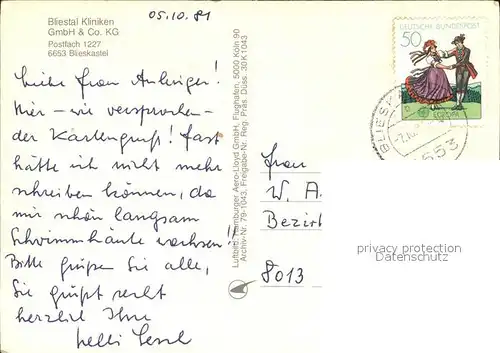 Bliestal Kliniken
GmbH & Co. KG
Postfach 1227
6653 Blieskastel
05.10.81
Liebe Frau
Hier - wie versprochen
der Kartengruß! Fast
hätte ich nicht mehr
schreiben können, da
mir schon langsam
Schwimmhäute wachsen!!
Bitte grüßen Sie alle,
Sie grüßt recht
herzlich Ihre
Luftbild: Hamburger Aero-Lloyd GmbH, Flughafen, 5000 Köln 90
Archiv-Nr. 79-1043, Freigabe-Nr. Reg. Präs. Düss. 30K1043
DEUTSCHE BUNDESPOST
50
EUROPA
BLIESK
6653
Frau
W. A.
Bezirk
8013
privacy protection
Datenschutz